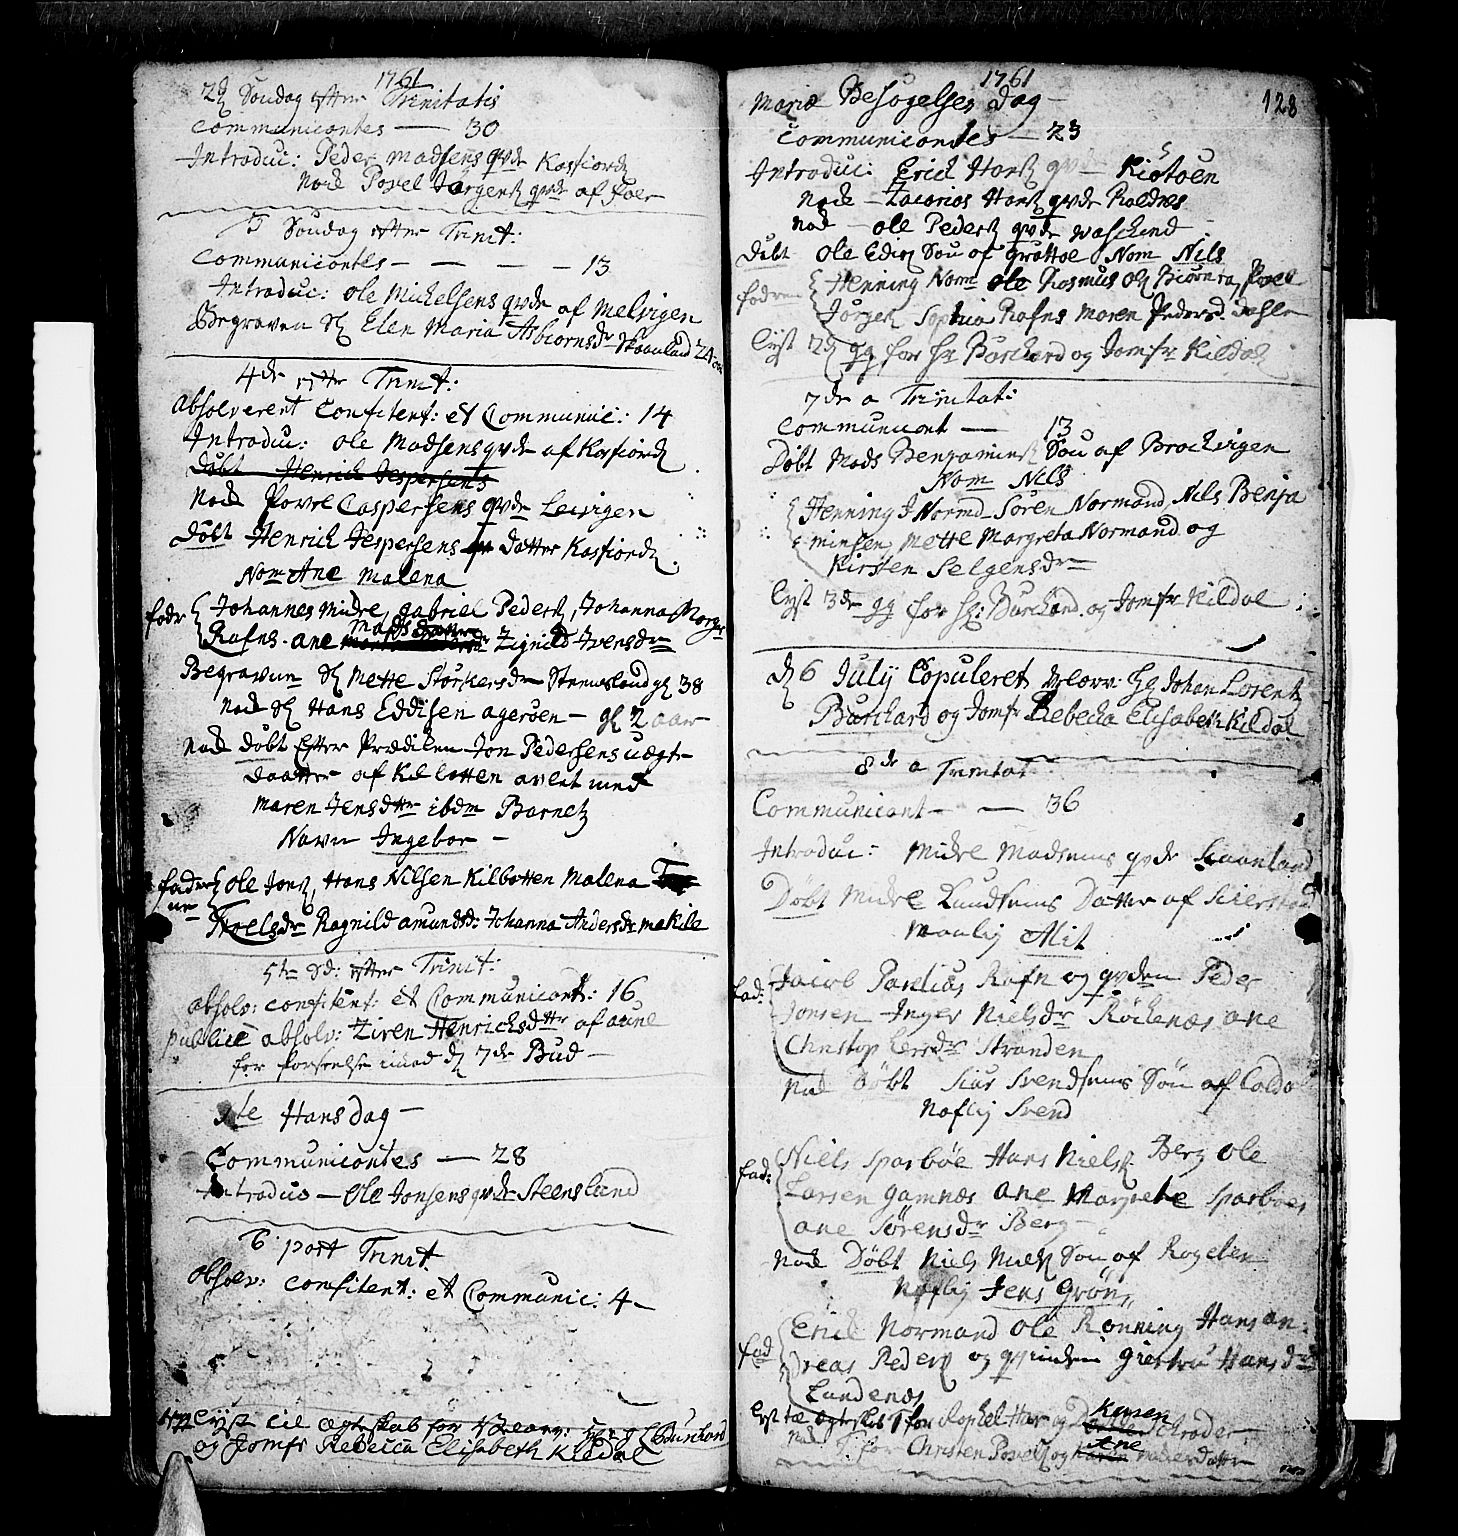 1761
2d Søndag efter Trinitatis
Communicantes — 30
Introduc: Peder Madsens qvde Kasfiord
Nok Povel Jørgens qvde af Foer
3 Søndag efter Trinit:
Communicantes — — — — 13
Introduc: Ole Michelsens qvde af Melvigen
Begraven Sl Elen Maria Asbiornsdr Skaanland 24
4de efter Trinit:
Absolverent Confitent: et Communic: 14
Introduc: Ole Madsens qvde af Kasfiord
Døbt Henrich Jespersens
Nok Povel Caspersens qvde Leivigen
Døbt Henrich Jespersens Datter Kasfiord
Nom Ane Malena
fadr Johannes Midre, Gabriel Peders, Johanna Margr
Rafns. Ane Mads datter Zignild Iversdr
Begraven Sl Mette Størkersdr Steensland gl 38
Nok Sl Hans Eddisen Agerøen — gl 2 aar
Nok Døbt Efter Prædiken Jon Pedersens uægte
Daatter af Kilbotten avlet med
Maren Jensdttr ibdm Barnetz
Navn Ingebor —
fadde Ole Jons, Hans Nilsen Kilbotten Malena
re Troelsdr Ragnild Amundsd: Johanna Andersdr Makile
5te Sd: efter Trinit:
Absolv: Confitent: et Communicant: 16
Publicè absolv: Ziren Henrichsdttr af Aune
for forseelse imod d 7de Bud —
Ste Hans dag —
Communicantes — 28
Introduc — Ole Jonsens qvde Steensland
6 post Trinit
Absolv: Confitent: et Communic: 4 —
Lyst til Ægteskab for Velærv: Hr Burchard
og Jomfr Rebecca Elisabeth Kildal
1761
128
Mariæ Besøgelses Dag —
Communicantes — 23
Introduc: Erich Hans qv — Kiøtøen
Nok — Zacarias Hans qvde Roldnes
Nok — Ole Peders qvde Waskind
Døbt Ole Edis Søn af Grøttøe Nom Nils
fadrene Henning Norm Ole Rasmus Ols Biørnera, Povel
Jørgens Sophia Rafns Maren Pedersd. Dahle
Lyst 2d gg for Hr Burchard og Jomfr Kildal
7de a Trinitat:
Communicant — 13
Døbt Mads Benjamins Søn af Brochvigen
Nom Nils
Henning J Normd Søren Normand Nils Benja
minsen, Mette Margreta Normand og
Kirsten Selgensdr
Lyst 3de gg for Hr: Burchard og Jomfr Kildal
D 6 July Copuleret Velærv: Hr Johan Lorentz
Burchard og Jomfr Rebecka Elisabeth Kildal
8de a Trinitat
Communicant — — 36
Introduc: Midel Madsens qvde Skaanland
Døbt Midel Lundsens Datter af
Maalig Alit
fad: Jacob Parelius Rafn og qvden Peder
Jonsen Inger Nielsdr Røckenæs Ane
Christop Larsdr Stranden
Nok Døbt Siur Svendsens Søn af Coldal
Naflig Svend
fad: Niels Sparboe Hans Niels Berg Ole
Larsen Gamnæs Ane Margrete Sparboes
Ane Sørensdr Berg —
Nok Døbt Niels Niels Søn af Rogelen
Naflig Jens Grøn
fad Erick Normand Ole Rønning Hans An:
dreas Peders og qvinden Giertru Hansdr
Lundenæs
Lyst til Ægteskab 1 for Raphel Hans og Karen Schrøder
Nok 1 for Christen Povels og Ane Nielsdatter